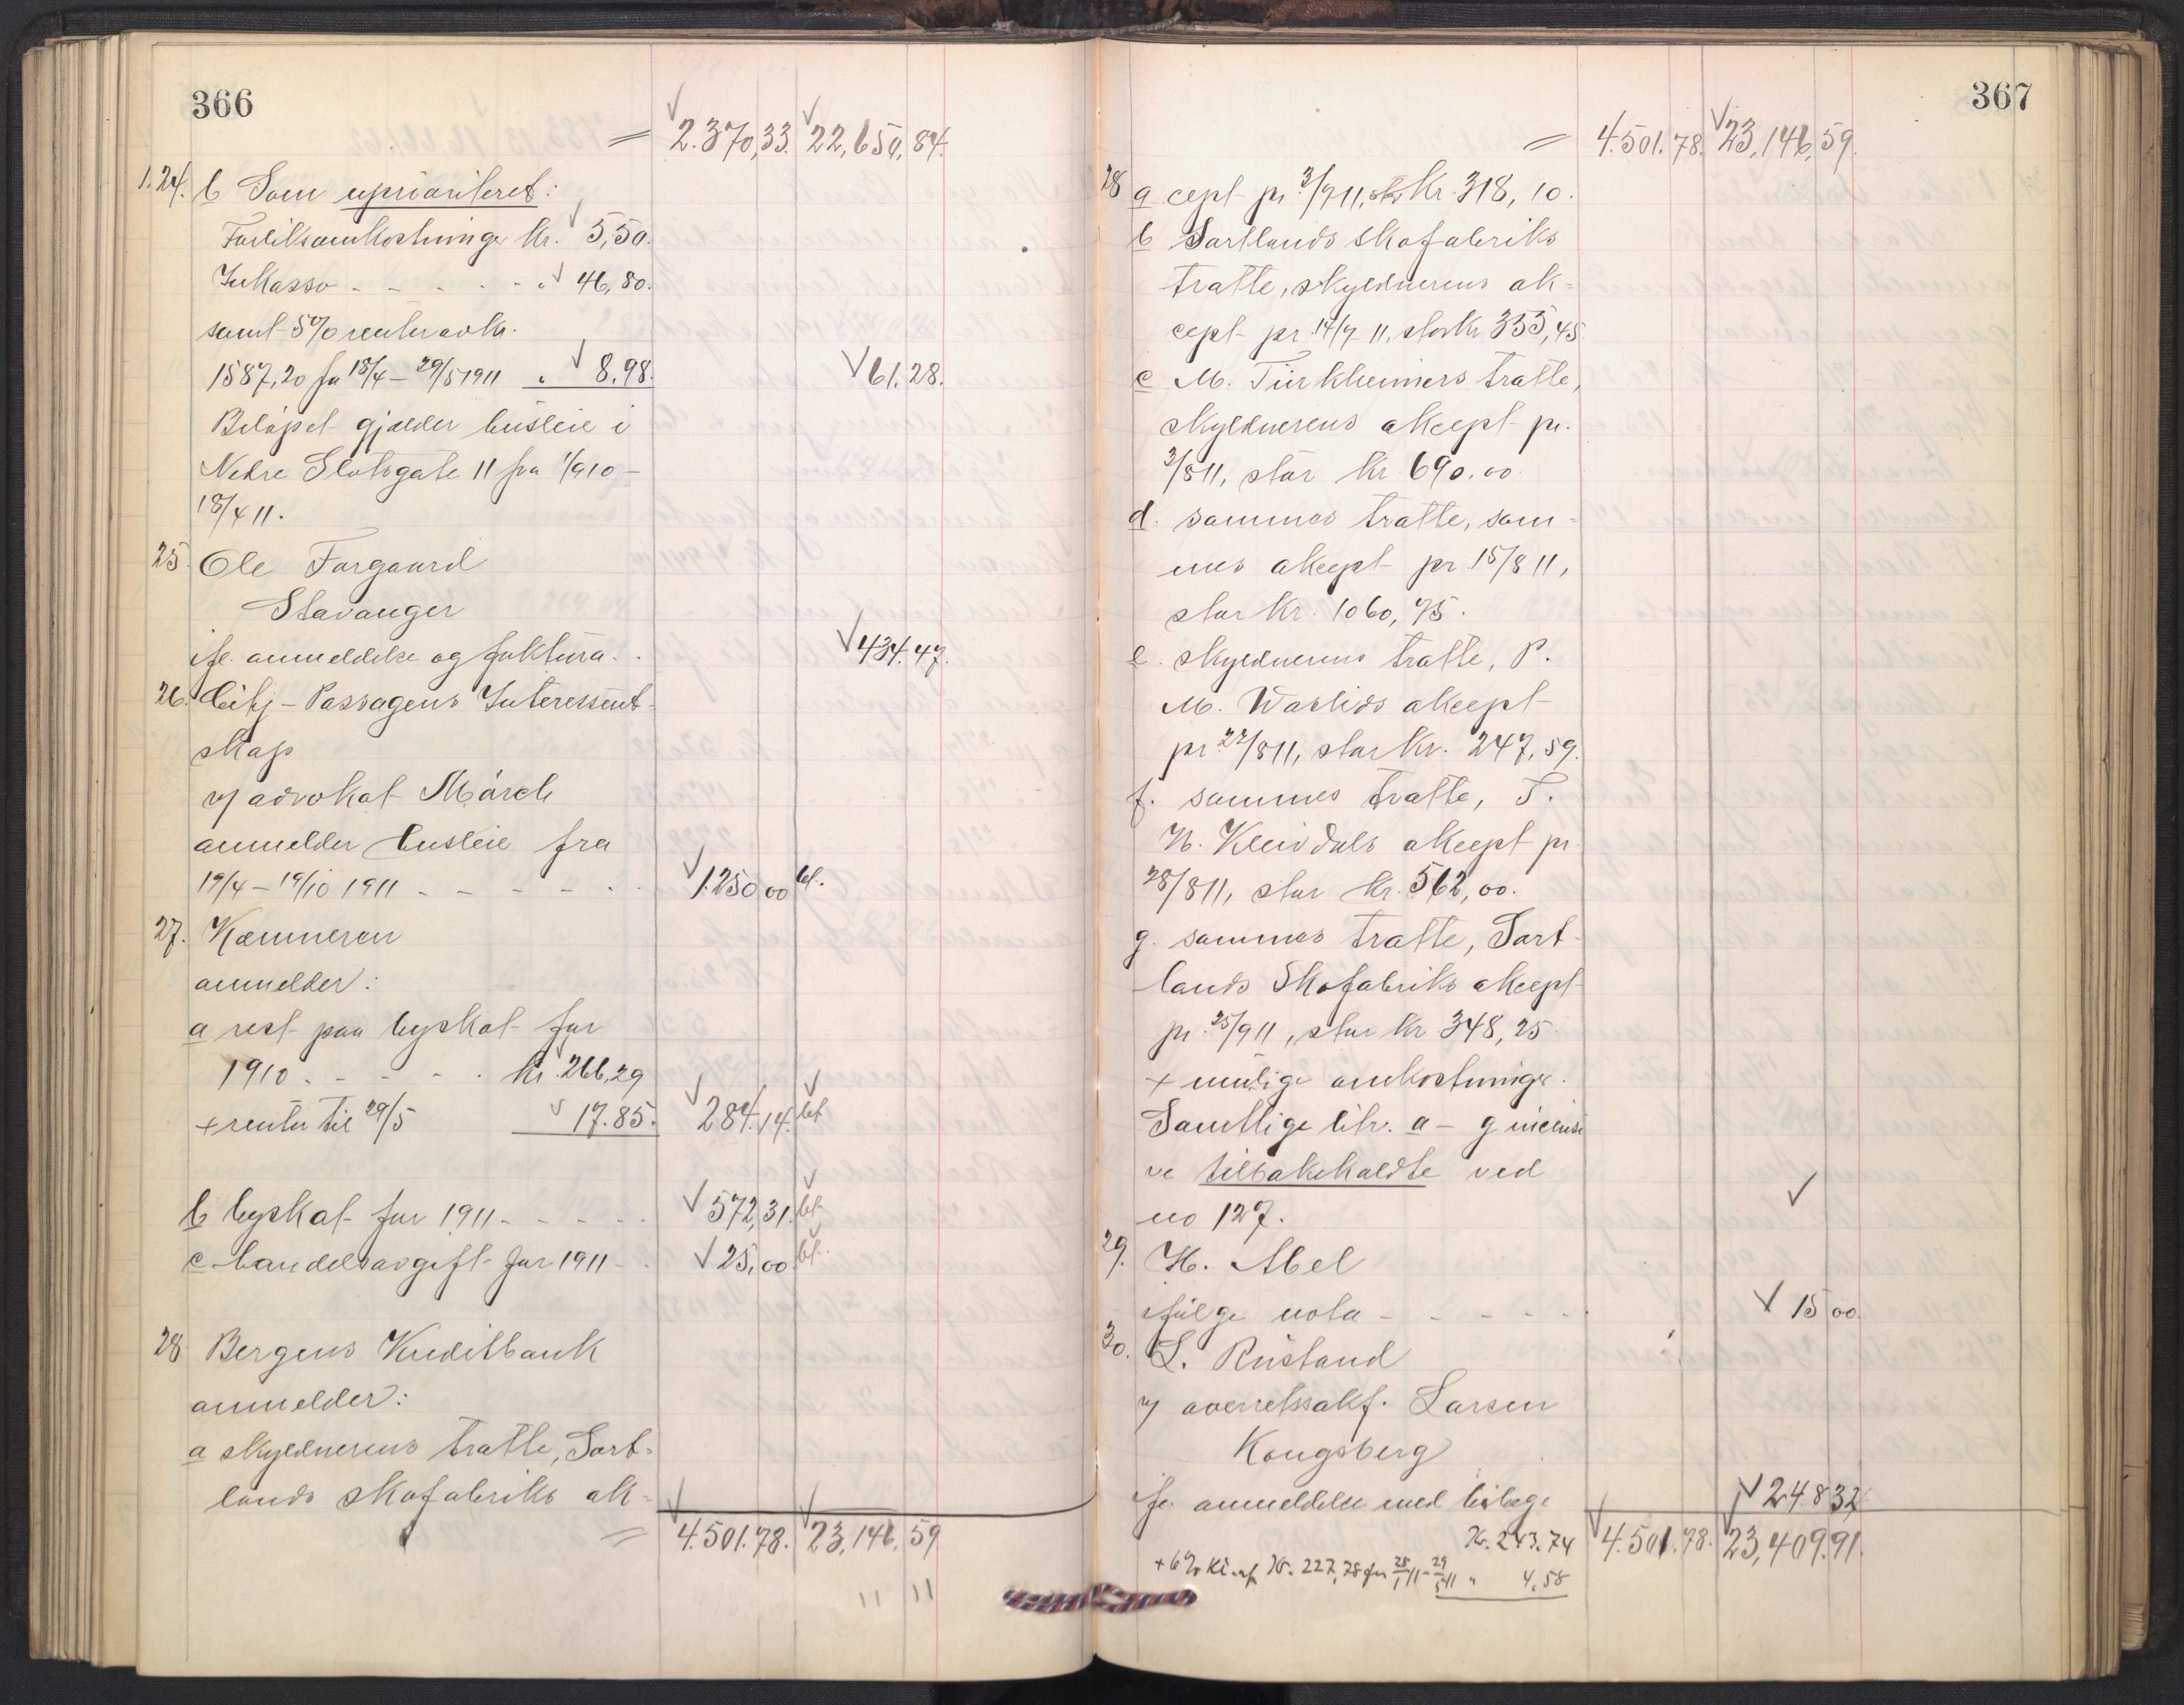 366
= 2.370,33. 22,650,84.
1.24. b Som uprioriteret:
Forliksomkostninger kr. 5,50.
Inkasso - - - - - " 46,80.
samt 5% renter av kr.
1587,20 fra 18/4 – 29/5 1911 " 8.98. 61.28.
Beløpet gjælder husleie i
Nedre Slotsgate 11 fra 1/9 10 –
18/4 11.
25. Ole Forgaard
Stavanger
ifl. anmeldelse og faktura. . 434.47.
26. City-Passagens Interessent-
skap
v/ advokat Mørch
anmelder husleie fra
19/4 – 19/10 1911 - - - - - 1.250 00 bet.
27. Kæmneren
anmelder:
a rest paa byskat for
1910 - - - - - kr. 266,29
+ renter til 29/5 17.85. 284.14. bet
b byskat for 1911 - - - - - 572,31. bet
c handelsavgift for 1911 - . 25,00 bet.
28. Bergens Kreditbank
anmelder:
a skyldnerens tratte, Sort-
lands skofabriks ak-
= 4.501.78. 23,146,59
367
= 4.501.78. 23,146,59.
28 a cept pr. 3/7 11, stor kr. 318,10.
b Sortlands skofabriks
tratte, skyldnerens ak-
cept pr. 14/7 11, stor kr 355,45
c M. Türkheimers tratte,
skyldnerens akcept pr.
3/8 11, stor kr 690.00.
d. sammes tratte, sam-
mes akcept pr. 15/8 11,
stor kr. 1060,75.
e. skyldnerens tratte, P.
M. Waslids akcept
pr. 22/8 11, stor kr. 247,59.
f. sammes tratte, T.
N. Kleivdals akcept pr.
28/8 11, stor kr. 562,00.
g. sammes tratte, Sort-
lands Skofabriks akcept
pr. 25/9 11, stor kr 348,25
+ mulige omkostninger.
Samtlige litr. a – g inclusi
ve tilbakekaldte ved
no 127.
29. H. Abel
ifølge nota - - - - - 15 00.
30. L. Rustand
v/ overretssakf. Larsen
Kongsberg
ifl. anmeldelse med bilage 248 32
Kr. 243.74 4.501.78. 23,409.91.
+ 6% rt. af Kr. 227,78 fra 28/1 11 – 29/5 11 " 4,58